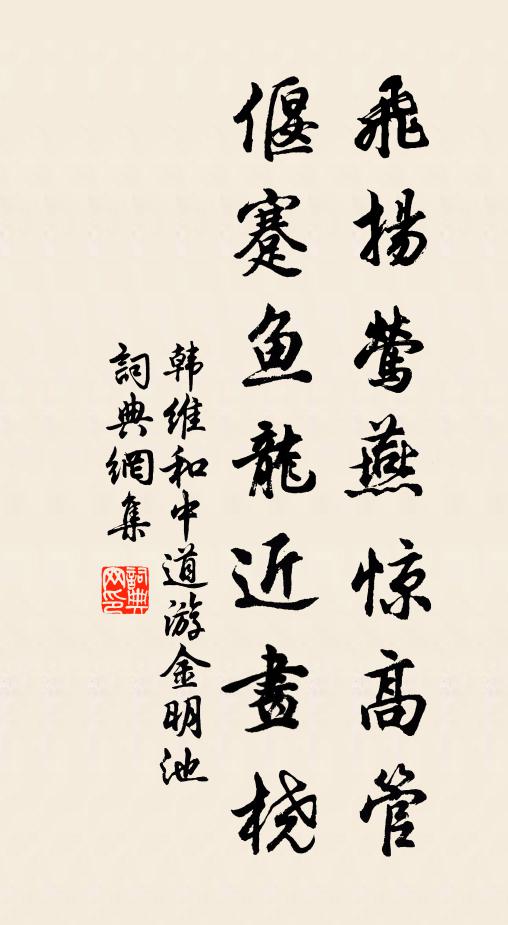 飛揚鶯燕惊高管
偃蹇鱼龍近畫桡
韩维和中道游金明池
詞典網集
詞典网印